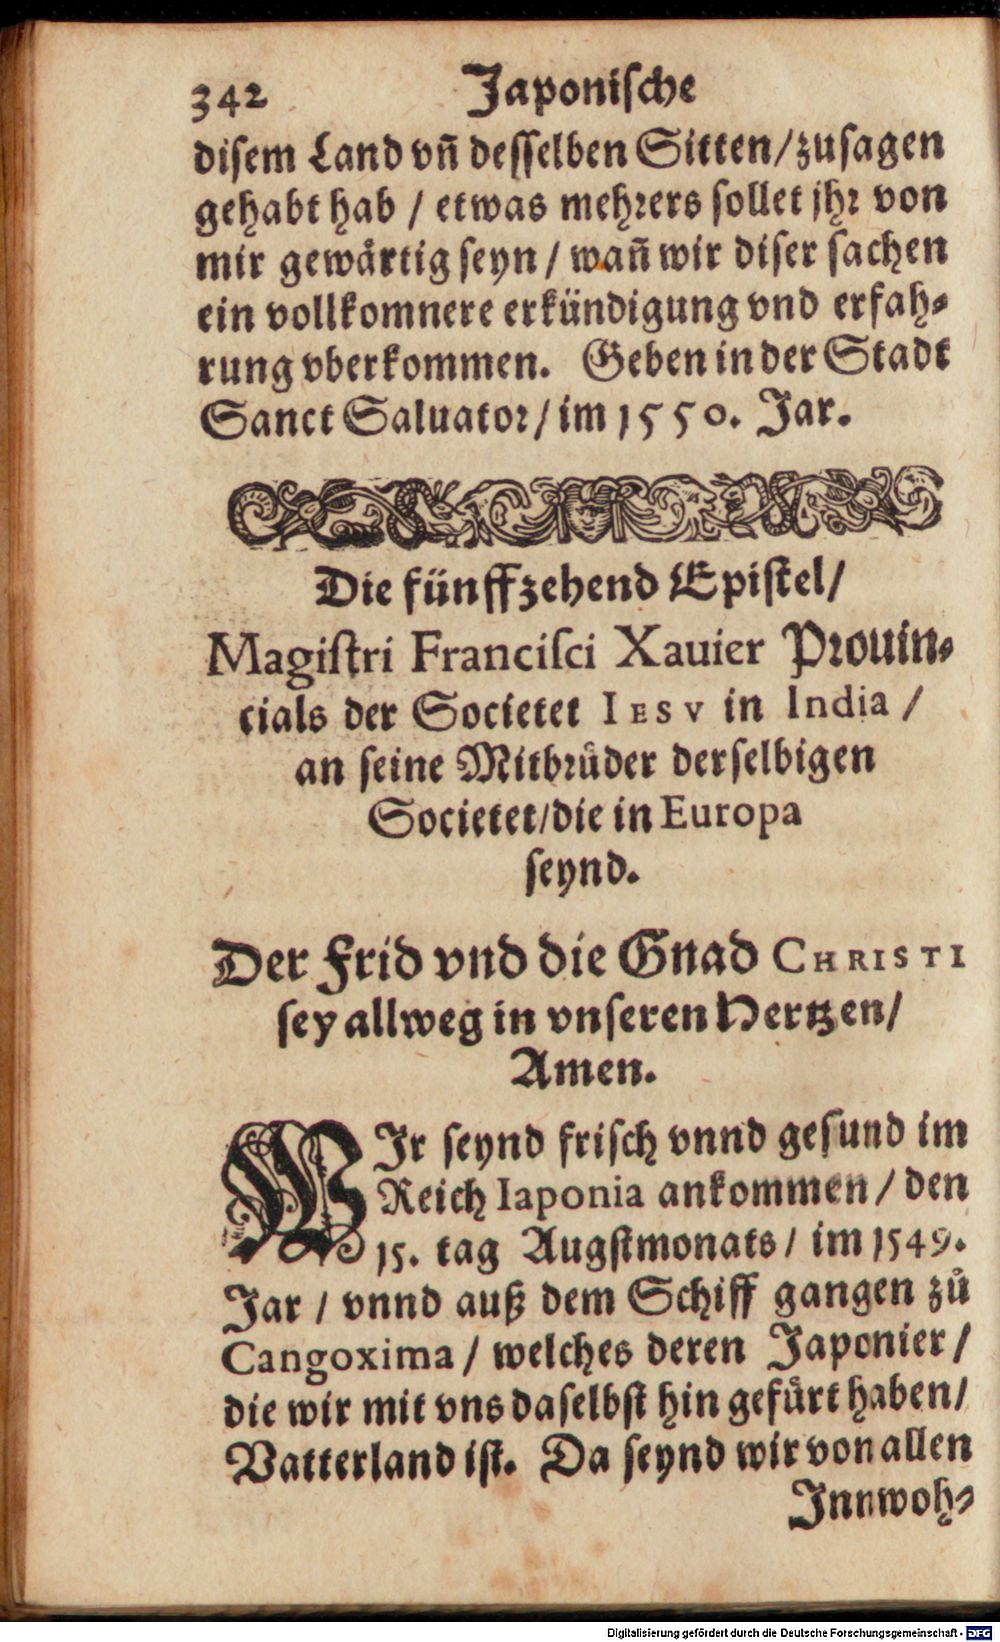 342 Japonische
disem Land vñ desselben Sitten/zusagen
gehabt hab / etwas mehrers sollet jhr von
mir gewaͤrtig seyn / wañ wir diser sachen
ein vollkomnere erkündigung vnd erfah-
rung vberkommen. Geben in der Stadt
Sanct Saluator/im 1550. Jar.
Die fünffzehend Epistel/
Magistri Francisci Xauier Prouin-
cials der Societet IESV in India /
an seine Mitbruͤder derselbigen
Societet/die in Europa
seynd.
Der Frid vnd die Gnad CHRISTI
sey allweg in vnseren Hertzen/
Amen.
WIr seynd frisch vnnd gesund im
Reich Iaponia ankommen / den
15. tag Augstmonats / im 1549.
Jar / vnnd auß dem Schiff gangen zuͦ
Cangoxima / welches deren Japonier /
die wir mit vns daselbst hin gefuͤrt haben/
Vatterland ist. Da seynd wir von allen
Innwoh-
Digitalisierung gefördert durch die Deutsche Forschungsgemeinschaft - DFG